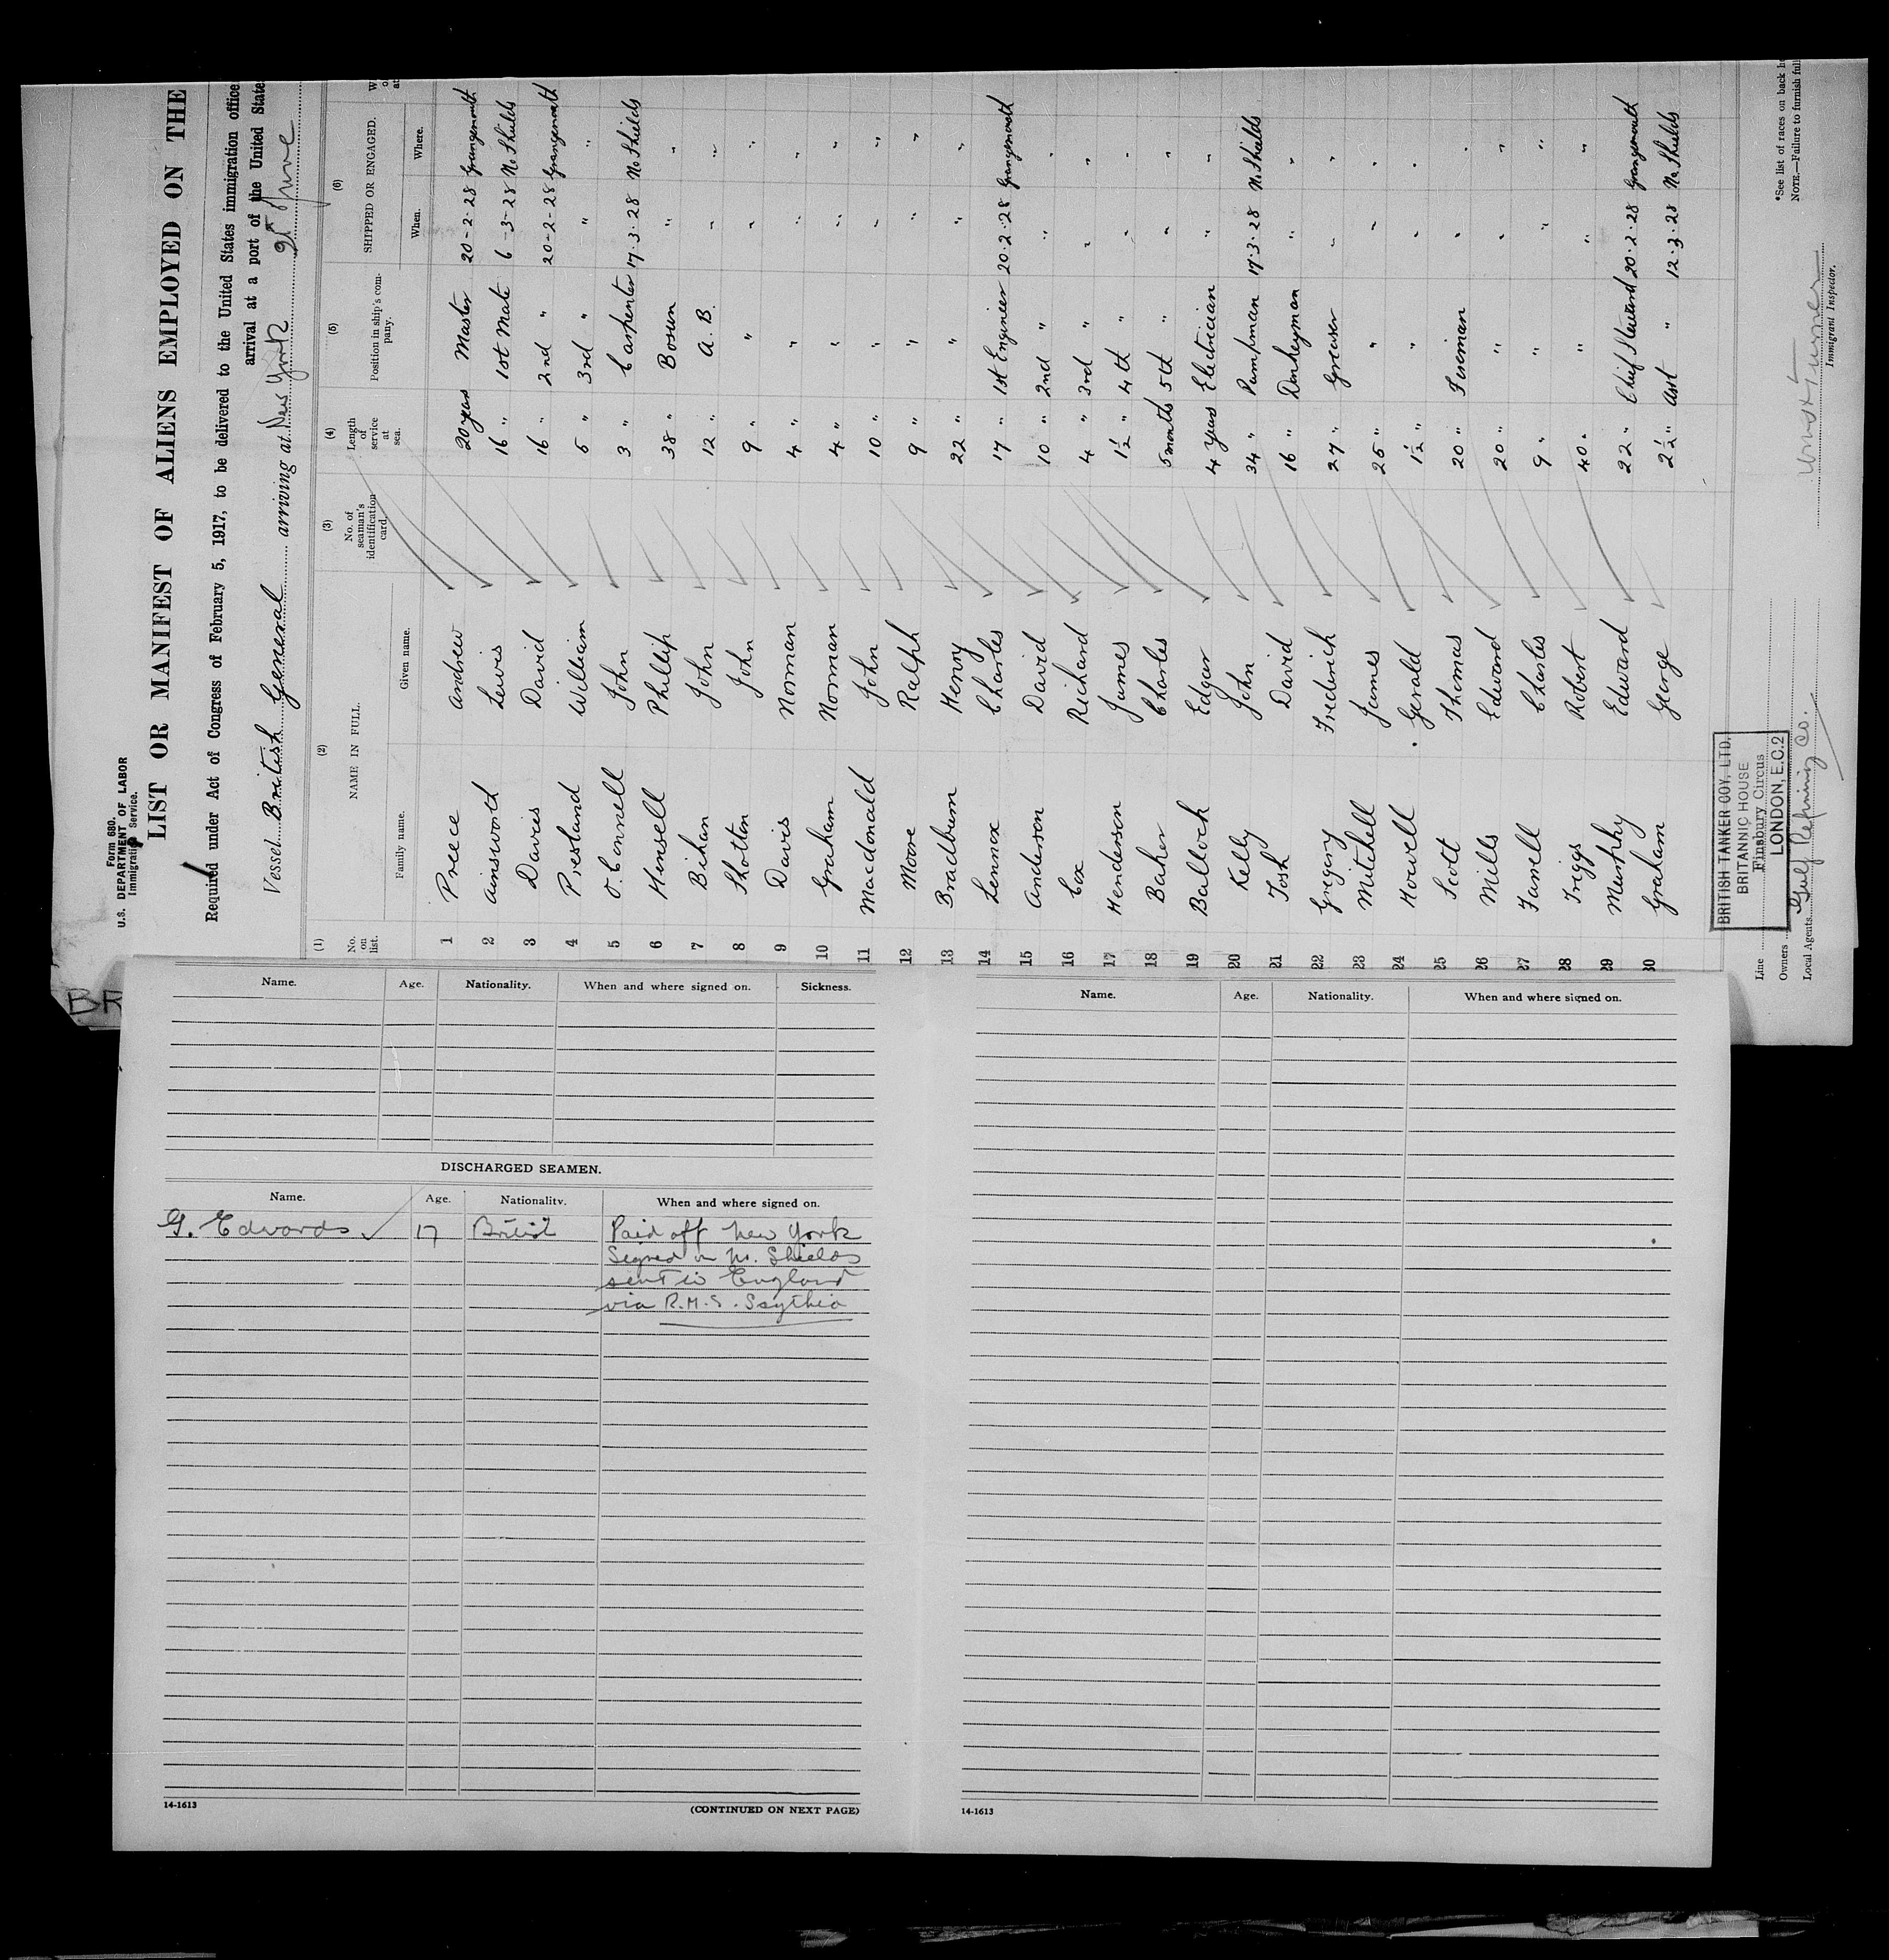 Form 680.
U.S. DEPARTMENT OF LABOR
Immigration Service.
LIST OR MANIFEST OF ALIENS EMPLOYED ON THE
Required under Act of Congress of February 5, 1917, to be delivered to the United States immigration office
arrival at a port of the United State
Vessel British General arriving at New York 25 June
(1) (2) (3) (4) (5) (6)
No. on list. NAME IN FULL. No. of seaman's identification card. Length of service at sea. Position in ship's company. SHIPPED OR ENGAGED.
Family name. Given name. When. Where.
1 Preece Andrew 20 years Master 20-2-28 Grangemouth
2 Ainsworth Lewis 16 " 1st Mate 6-3-28 No Shields
3 Davis David 16 " 2nd " 20-2-28 Grangemouth
4 Presland William 5 " 3rd " " "
5 O.Connell John 3 " Carpenter 17.3.28 No Shields
6 Hensell Phillip 38 " Bosun " "
7 Bihan John 12 " A.B. " "
8 Shotton John 9 " " " "
9 Davis Norman 4 " " " "
10 Graham Norman 4 " " " "
11 Macdonald John 10 " " " "
12 Moore Ralph 9 " " " "
13 Bradburn Henry 22 " " " "
14 Lennox Charles 17 " 1st Engineer 20.2.28 Grangemouth
15 Anderson David 10 " 2nd " " "
16 Cox Richard 4 " 3rd " " "
17 Henderson James 1½ " 4th " " "
18 Baker Charles 5 months 5th " " "
19 Balloch Edgar 4 years Electrician " "
20 Kelly John 34 " Pumpman 17.3.28 No Shields
21 Tosh David 16 " Donkeyman " "
22 Gregory Frederich 27 " Greaser " "
23 Mitchell James 25 " " " "
24 Howell Gerald 1½ " " " "
25 Scott Thomas 20 " Fireman " "
26 Mills Edward 20 " " " "
27 Farrell Charles 9 " " " "
28 Triggs Robert 40 " " " "
29 Murphy Edward 22 " Chief Steward 20.2.28 Grangemouth
30 Graham George 2½ " Asst " 12.3.28 No Shields
BRITISH TANKER COY. LTD.
BRITANNIC HOUSE
Finsbury Circus
LONDON, E.C.2
Line
Owners
Local Agents Gulf Refining Co.
Immigrant Inspector.
*See list of races on back
NOTE.—Failure to furnish full
BR
Name. Age. Nationality. When and where signed on. Sickness.
DISCHARGED SEAMEN.
Name. Age. Nationality. When and where signed on.
G. Edwards 17 British Paid off New York
Signed on No. Shields
sent to England
via R.M.S. Scythia
14-1613
(CONTINUED ON NEXT PAGE)
Name. Age. Nationality. When and where signed on.
14-1613